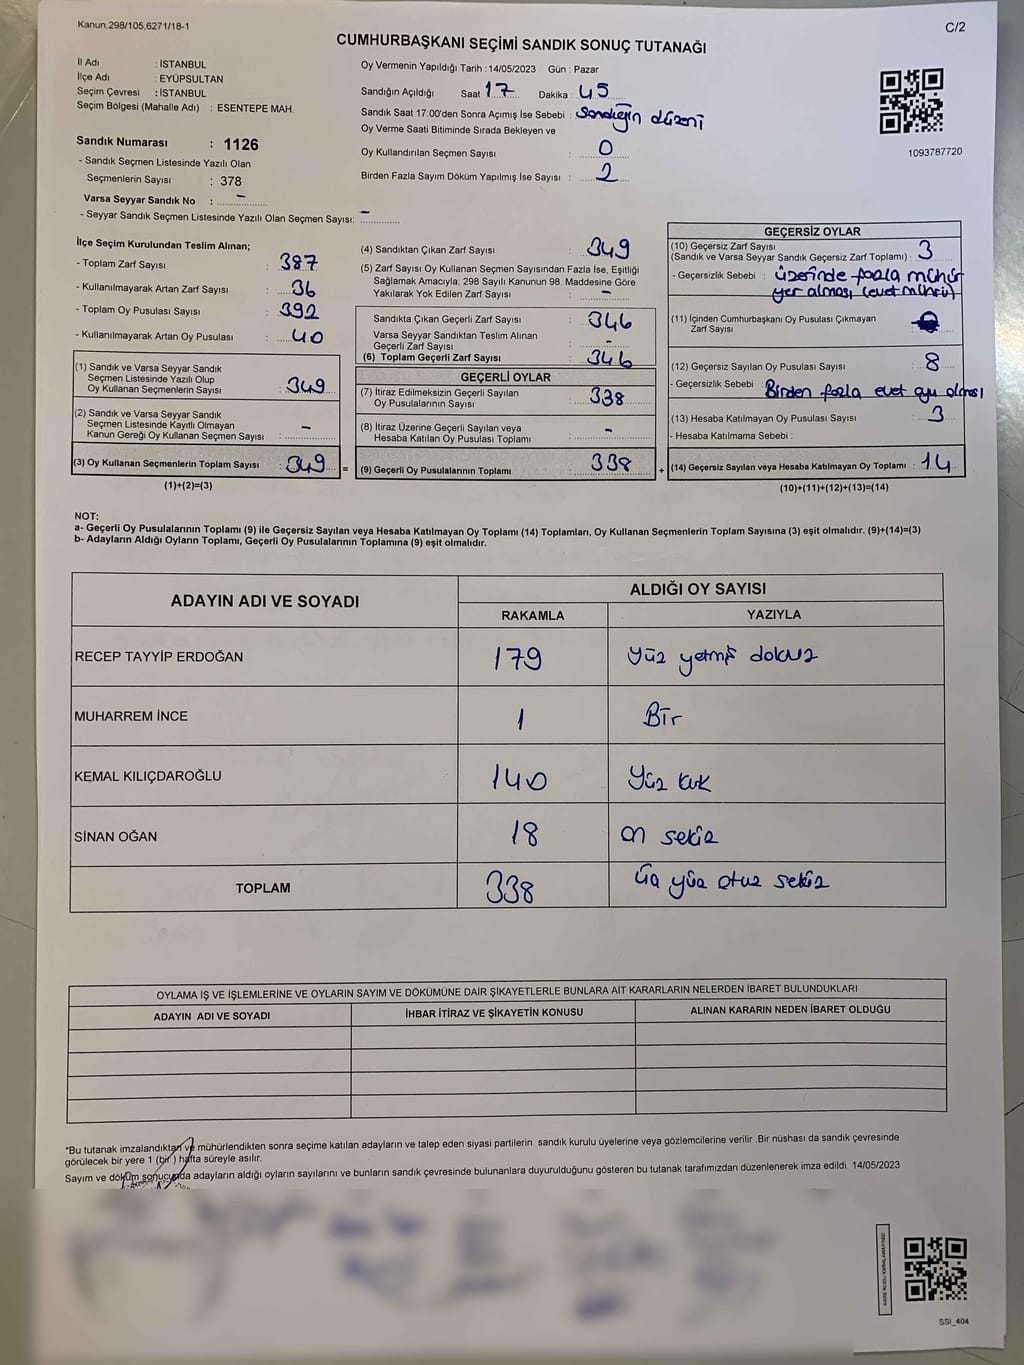 Kanun.298/105,6271/18-1
C/2
CUMHURBAŞKANI SEÇİMİ SANDIK SONUÇ TUTANAĞI
İl Adı : İSTANBUL
İlçe Adı : EYÜPSULTAN
Seçim Çevresi : İSTANBUL
Seçim Bölgesi (Mahalle Adı) : ESENTEPE MAH.
Sandık Numarası : 1126
- Sandık Seçmen Listesinde Yazılı Olan
Seçmenlerin Sayısı : 378
Varsa Seyyar Sandık No : -
- Seyyar Sandık Seçmen Listesinde Yazılı Olan Seçmen Sayısı: -
Oy Vermenin Yapıldığı Tarih : 14/05/2023 Gün : Pazar
Sandığın Açıldığı Saat 17 Dakika : 45
Sandık Saat 17:00'den Sonra Açımış İse Sebebi : Sandığın düzeni
Oy Verme Saati Bitiminde Sırada Bekleyen ve
Oy Kullandırılan Seçmen Sayısı : 0
Birden Fazla Sayım Döküm Yapılmış İse Sayısı : 2
1093787720
İlçe Seçim Kurulundan Teslim Alınan;
- Toplam Zarf Sayısı : 387
- Kullanılmayarak Artan Zarf Sayısı : 36
- Toplam Oy Pusulası Sayısı : 392
- Kullanılmayarak Artan Oy Pusulası : 40
(1) Sandık ve Varsa Seyyar Sandık
Seçmen Listesinde Yazılı Olup
Oy Kullanan Seçmenlerin Sayısı : 349
(2) Sandık ve Varsa Seyyar Sandık
Seçmen Listesinde Kayıtlı Olmayan
Kanun Gereği Oy Kullanan Seçmen Sayısı : -
(3) Oy Kullanan Seçmenlerin Toplam Sayısı : 349 =
(1)+(2)=(3)
(4) Sandıktan Çıkan Zarf Sayısı : 349
(5) Zarf Sayısı Oy Kullanan Seçmen Sayısından Fazla İse, Eşitliği
Sağlamak Amacıyla; 298 Sayılı Kanunun 98. Maddesine Göre
Yakılarak Yok Edilen Zarf Sayısı : -
Sandıkta Çıkan Geçerli Zarf Sayısı : 346
Varsa Seyyar Sandıktan Teslim Alınan
Geçerli Zarf Sayısı : -
(6) Toplam Geçerli Zarf Sayısı : 346
GEÇERLİ OYLAR
(7) İtiraz Edilmeksizin Geçerli Sayılan
Oy Pusulalarının Sayısı : 338
(8) İtiraz Üzerine Geçerli Sayılan veya
Hesaba Katılan Oy Pusulası Toplamı : -
(9) Geçerli Oy Pusulalarının Toplamı : 338 +
GEÇERSİZ OYLAR
(10) Geçersiz Zarf Sayısı
(Sandık ve Varsa Seyyar Sandık Geçersiz Zarf Toplamı) : 3
- Geçersizlik Sebebi : üzerinde fazla mühür
yer alması (evet mührü)
(11) İçinden Cumhurbaşkanı Oy Pusulası Çıkmayan
Zarf Sayısı :
(12) Geçersiz Sayılan Oy Pusulası Sayısı : 8
- Geçersizlik Sebebi : Birden fazla evet oyu olması
(13) Hesaba Katılmayan Oy Pusulası Sayısı : 3
- Hesaba Katılmama Sebebi :
(14) Geçersiz Sayılan veya Hesaba Katılmayan Oy Toplamı : 14
(10)+(11)+(12)+(13)=(14)
NOT:
a- Geçerli Oy Pusulalarının Toplamı (9) ile Geçersiz Sayılan veya Hesaba Katılmayan Oy Toplamı (14) Toplamları, Oy Kullanan Seçmenlerin Toplam Sayısına (3) eşit olmalıdır. (9)+(14)=(3)
b- Adayların Aldığı Oyların Toplamı, Geçerli Oy Pusulalarının Toplamına (9) eşit olmalıdır.
ADAYIN ADI VE SOYADI
ALDIĞI OY SAYISI
RAKAMLA YAZIYLA
RECEP TAYYİP ERDOĞAN 179 Yüz yetmiş dokuz
MUHARREM İNCE 1 Bir
KEMAL KILIÇDAROĞLU 140 Yüz kırk
SİNAN OĞAN 18 on sekiz
TOPLAM 338 üç yüz otuz sekiz
OYLAMA İŞ VE İŞLEMLERİNE VE OYLARIN SAYIM VE DÖKÜMÜNE DAİR ŞİKAYETLERLE BUNLARA AİT KARARLARIN NELERDEN İBARET BULUNDUKLARI
ADAYIN ADI VE SOYADI İHBAR İTİRAZ VE ŞİKAYETİN KONUSU ALINAN KARARIN NEDEN İBARET OLDUĞU
*Bu tutanak imzalandıktan ve mühürlendikten sonra seçime katılan adayların ve talep eden siyasi partilerin sandık kurulu üyelerine veya gözlemcilerine verilir .Bir nüshası da sandık çevresinde
görülecek bir yere 1 (bir ) hafta süreyle asılır.
Sayım ve döküm sonucunda adayların aldığı oyların sayılarını ve bunların sandık çevresinde bulunanlara duyurulduğunu gösteren bu tutanak tarafımızdan düzenlenerek imza edildi. 14/05/2023
KARE KODU KARALAMAYINIZ!
SSI_404